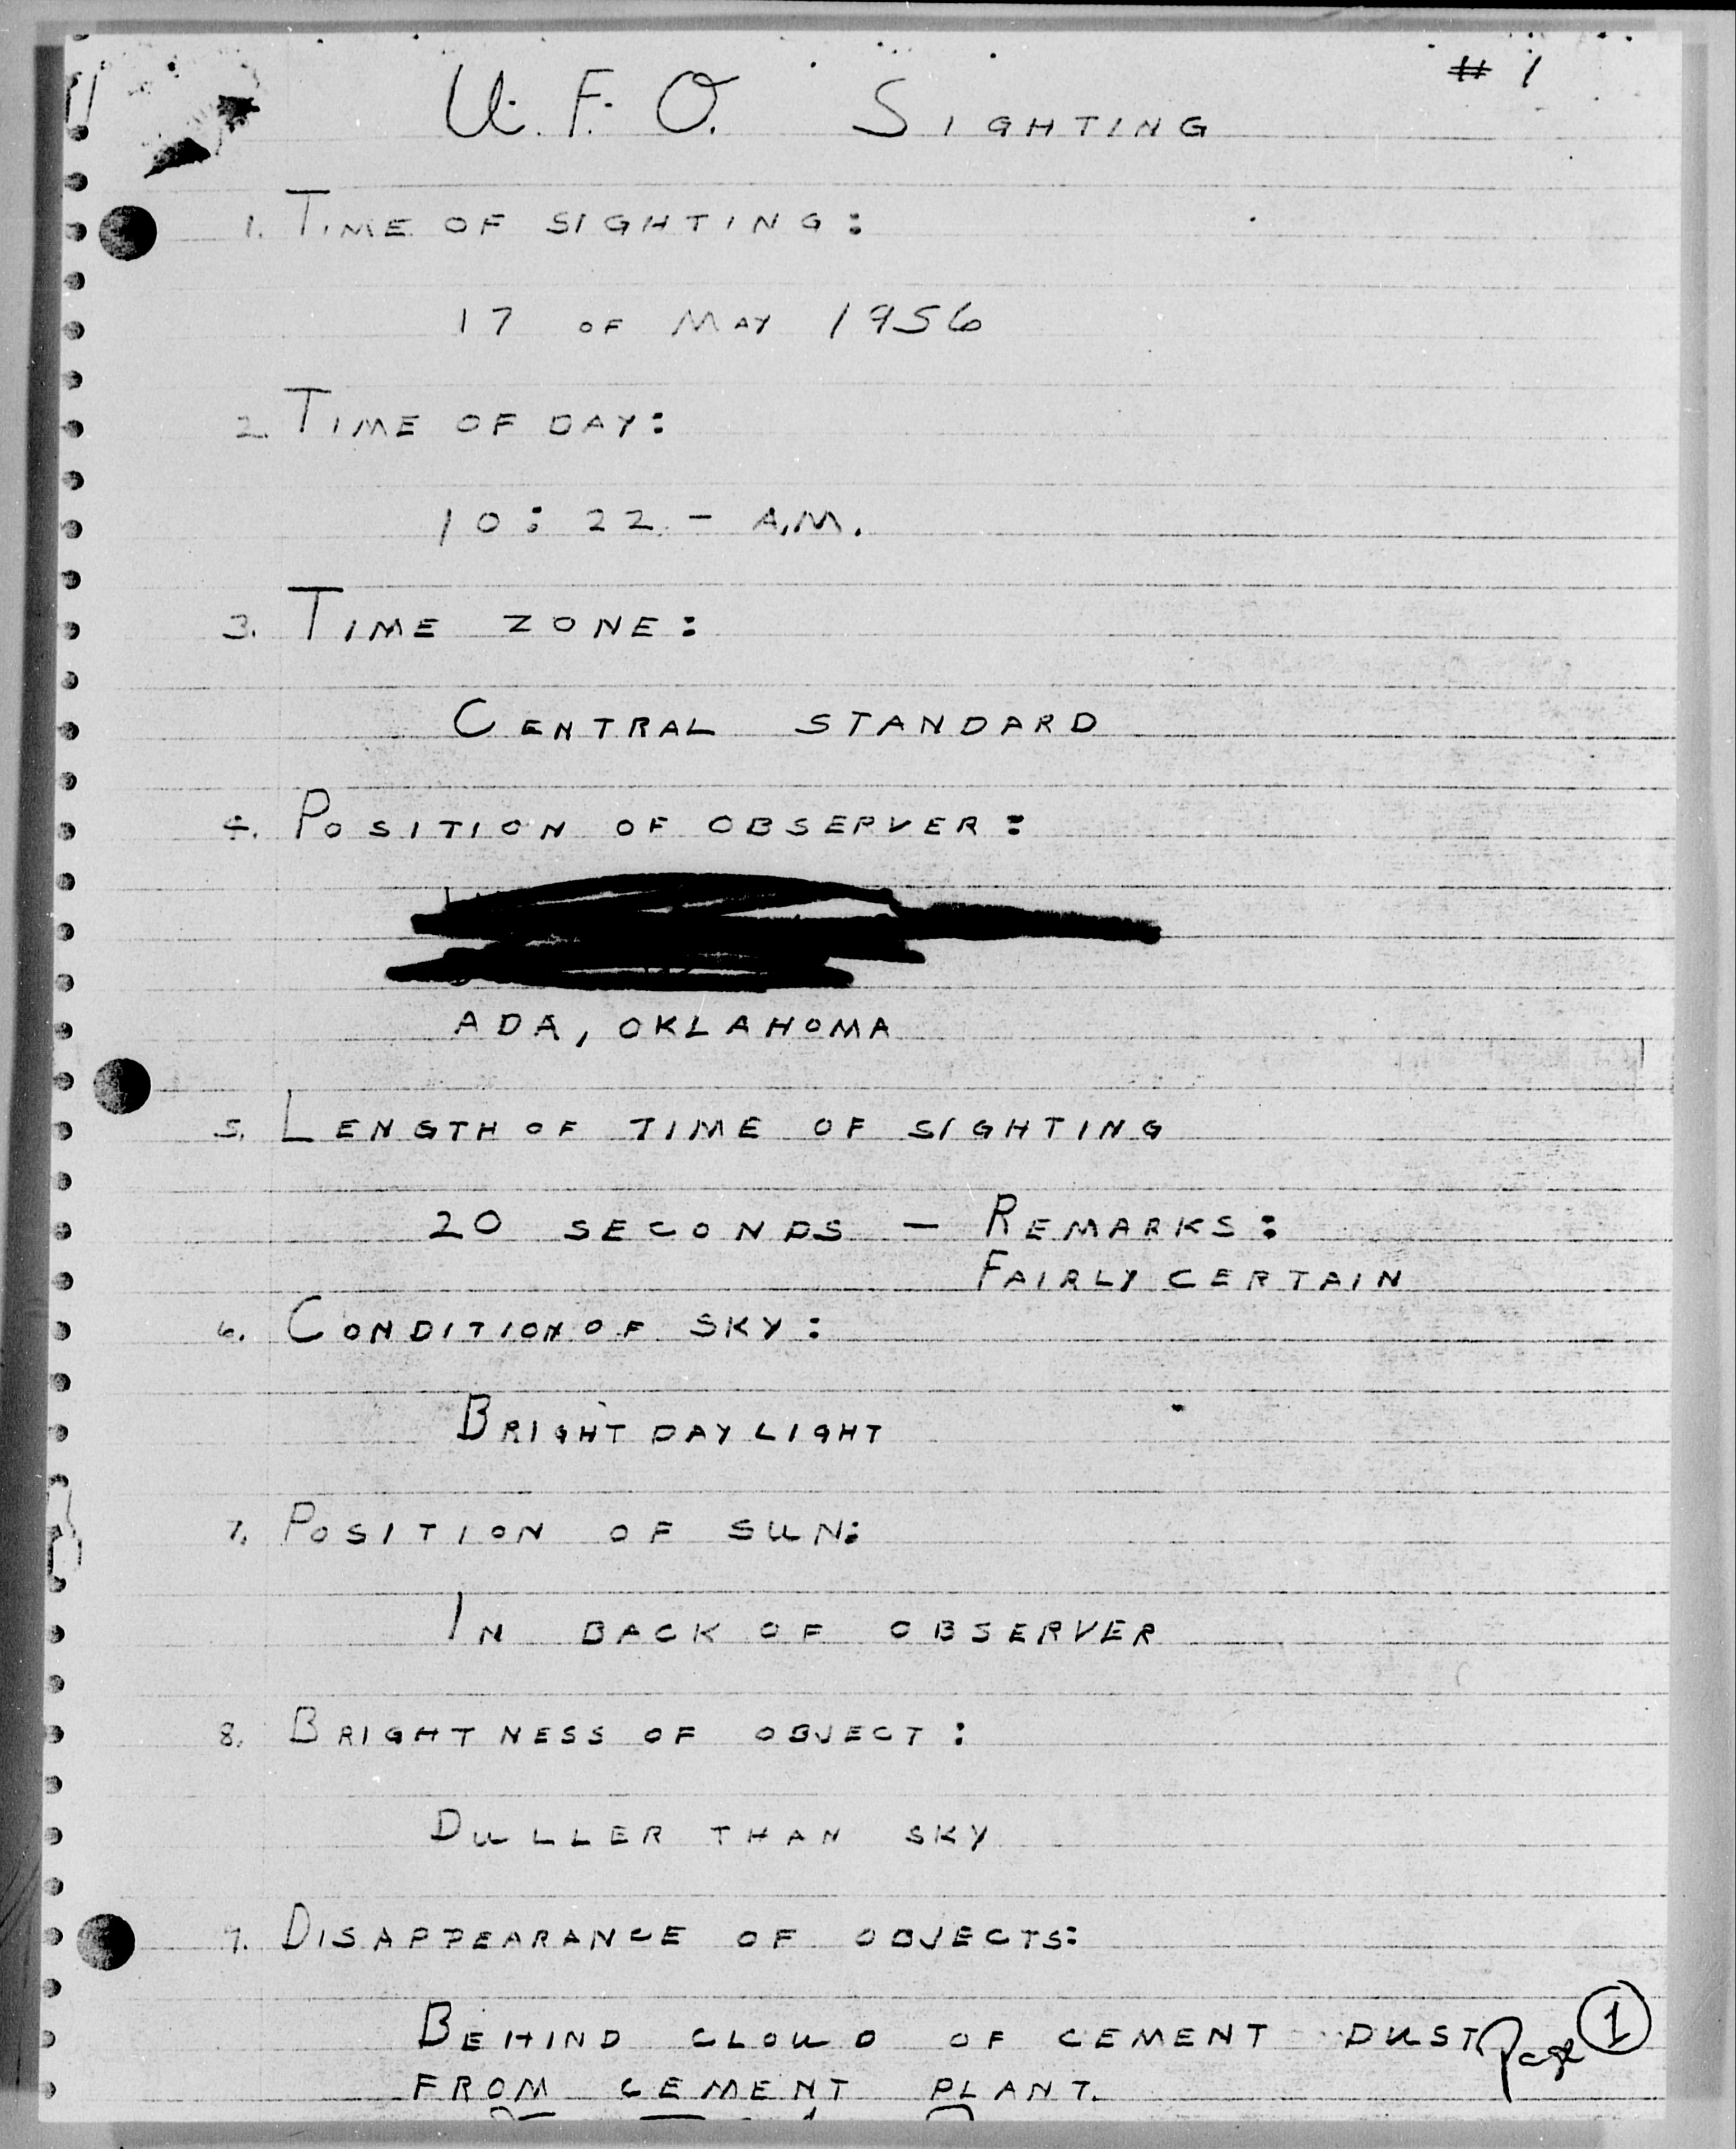 # 1
U.F.O. SIGHTING
1. TIME OF SIGHTING:
17 OF MAY 1956
2. TIME OF DAY:
10:22 - A.M.
3. TIME ZONE:
CENTRAL STANDARD
4. POSITION OF OBSERVER:
ADA, OKLAHOMA
5. LENGTH OF TIME OF SIGHTING
20 SECONDS - REMARKS:
FAIRLY CERTAIN
6. CONDITION OF SKY:
BRIGHT DAYLIGHT
7. POSITION OF SUN:
IN BACK OF OBSERVER
8. BRIGHTNESS OF OBJECT:
DULLER THAN SKY
9. DISAPPEARANCE OF OBJECTS:
BEHIND CLOUD OF CEMENT DUST
FROM CEMENT PLANT.
Page 1